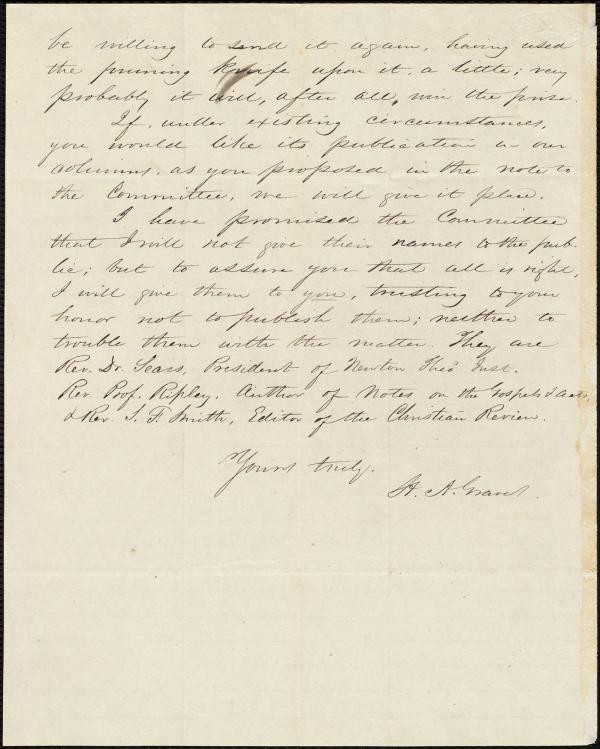 be willing to send it again, having used
the pruning knife upon it, a little; very
probably it will, after all, win the prize.
If, under existing circumstances,
you would like its publication in our
columns, as you proposed in the note to
the Committee, we will give it place.
I have promised the Committee
that I will not give their names to the pub-
lic; but to assure you that all is right,
I will give them to you, trusting to your
honor not to publish them; neither to
trouble them with the matter. They are
Rev. Dr. Sears, President of Newton Theo. Inst.
Rev. Prof. Ripley, Author of Notes on the Gospels & Acts,
& Rev. S. F. Smith, Editor of the Christian Review.
Yours truly.
H. A. Graves.